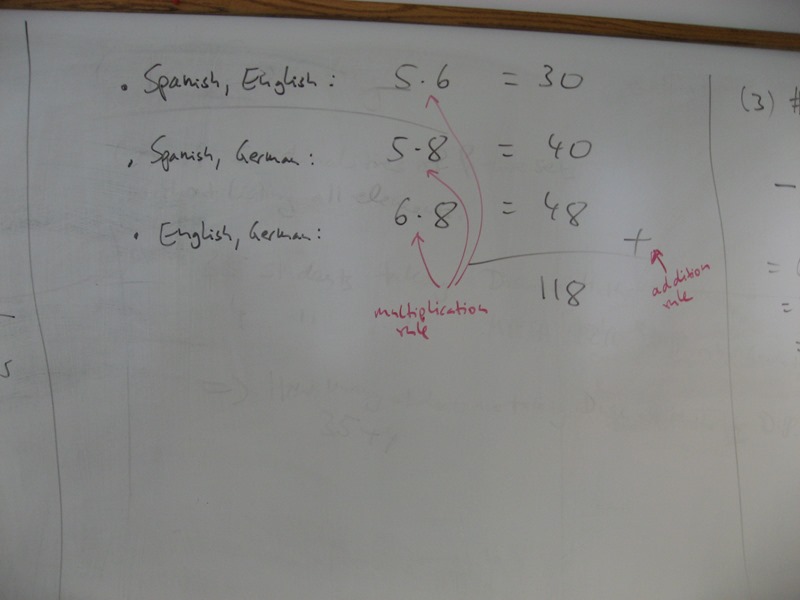 . Spanish, English: 5·6 = 30
. Spanish, German: 5·8 = 40
. English, German: 6·8 = 48
+
118
multiplication rule
addition rule
(3) #
=
=
=
s